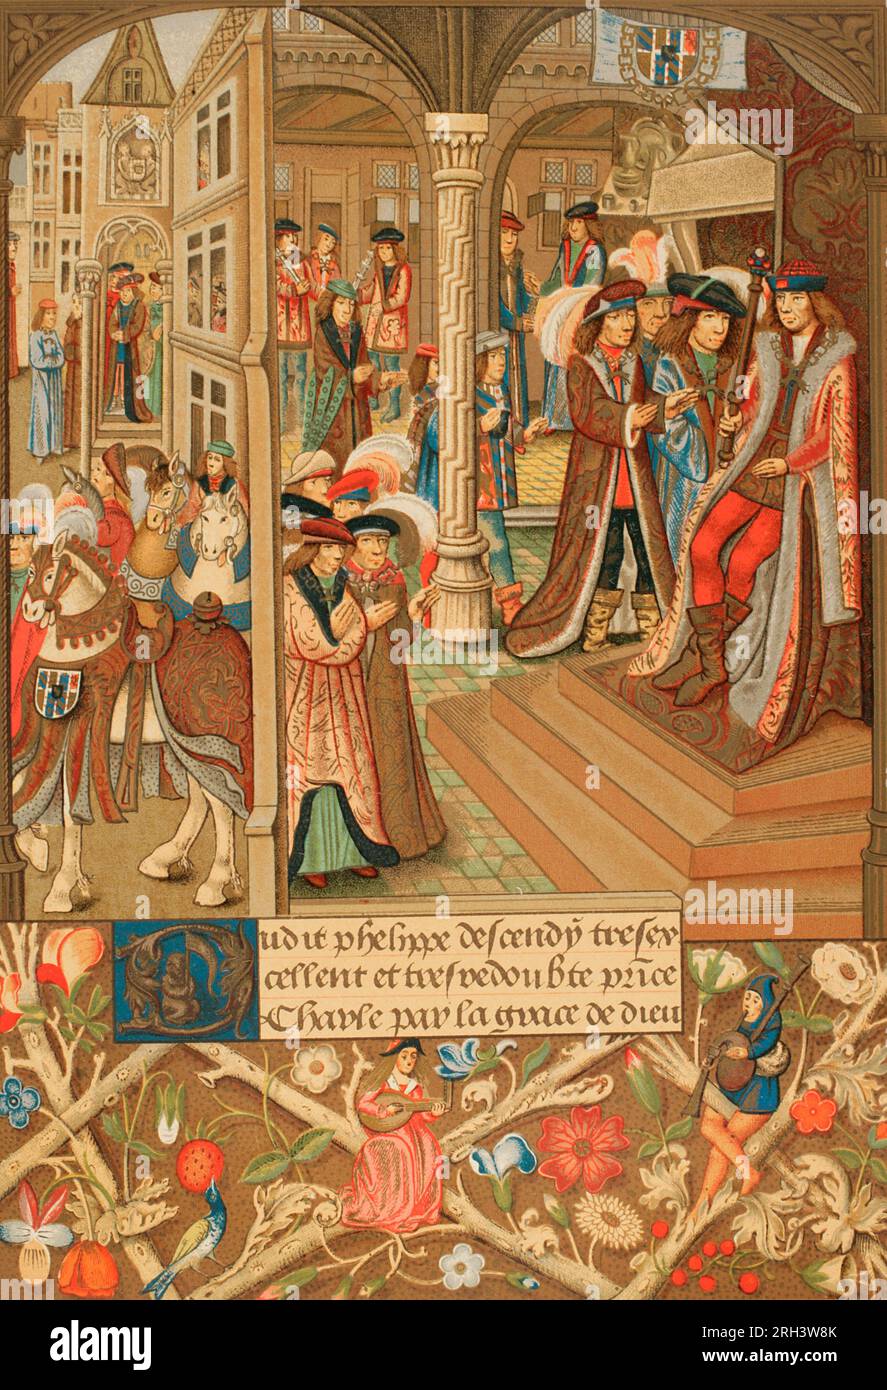 Dudit phelippe descendy tresex
cellent et tresredoubte prīce
Charle par la grace de dieu
alamy
Image ID: 2RH3W8K
www.alamy.com